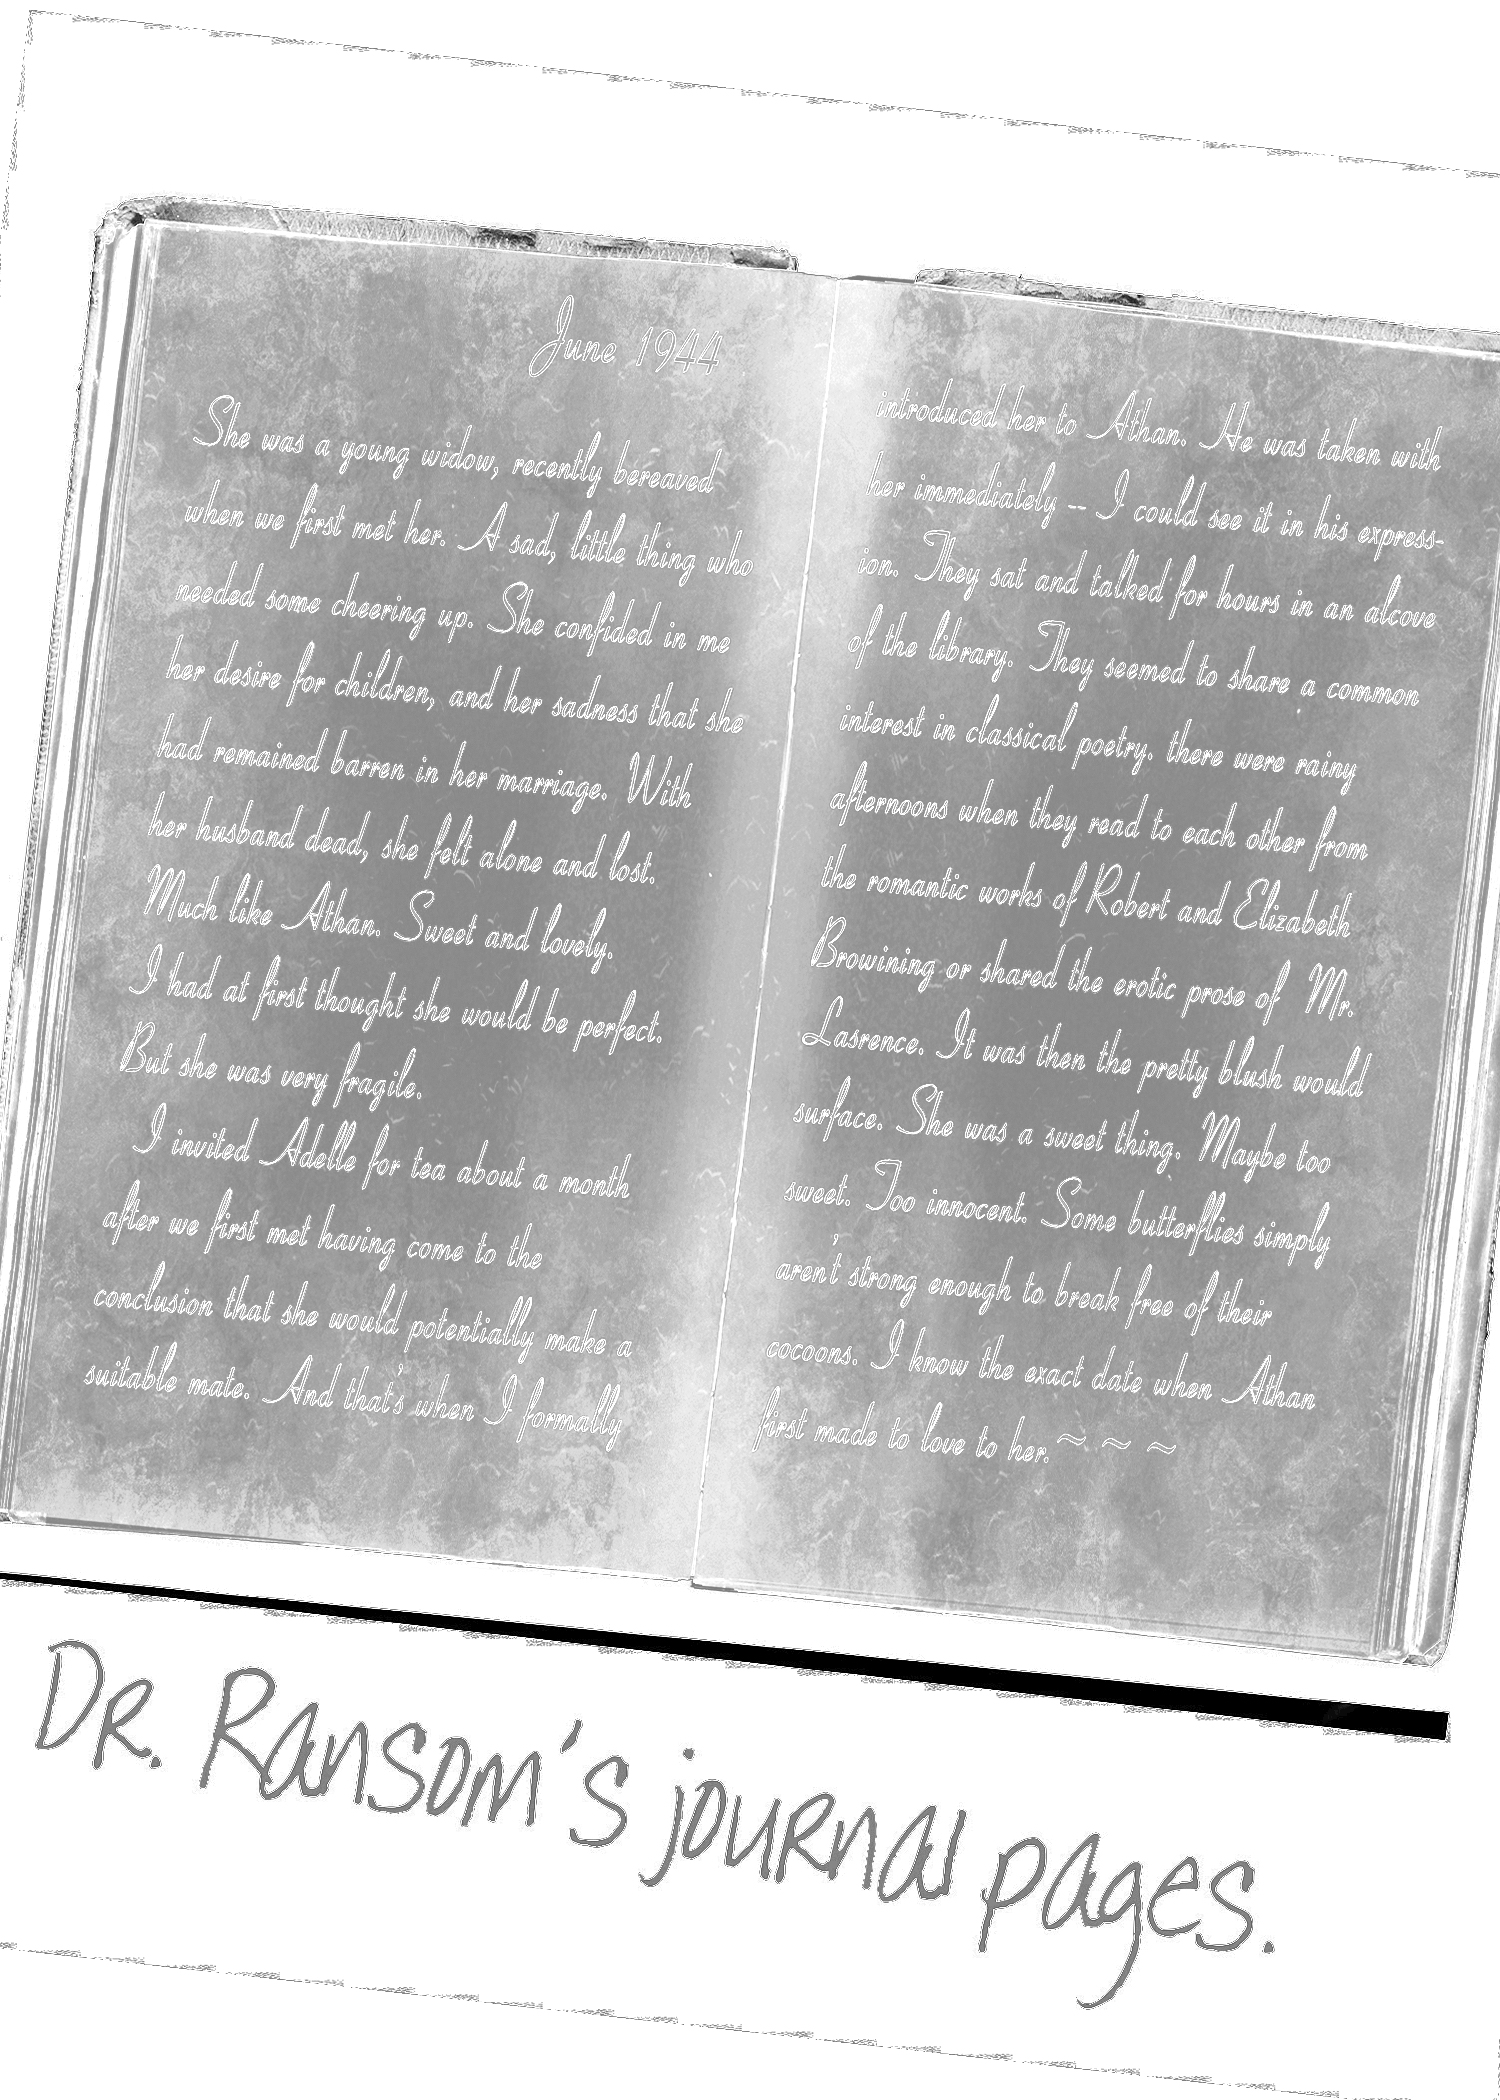 June 1944
She was a young widow, recently bereaved
when we first met her. A sad, little thing who
needed some cheering up. She confided in me
her desire for children, and her sadness that she
had remained barren in her marriage. With
her husband dead, she felt alone and lost.
Much like Athan. Sweet and lovely.
I had at first thought she would be perfect.
But she was very fragile.
I invited Adelle for tea about a month
after we first met having come to the
conclusion that she would potentially make a
suitable mate. And that's when I formally
introduced her to Athan. He was taken with
her immediately -- I could see it in his express-
ion. They sat and talked for hours in an alcove
of the library. They seemed to share a common
interest in classical poetry. there were rainy
afternoons when they read to each other from
the romantic works of Robert and Elizabeth
Browining or shared the erotic prose of Mr.
Lasrence. It was then the pretty blush would
surface. She was a sweet thing. Maybe too
sweet. Too innocent. Some butterflies simply
aren't strong enough to break free of their
cocoons. I know the exact date when Athan
first made to love to her.~ ~ ~
Dr. Ransom's journal pages.